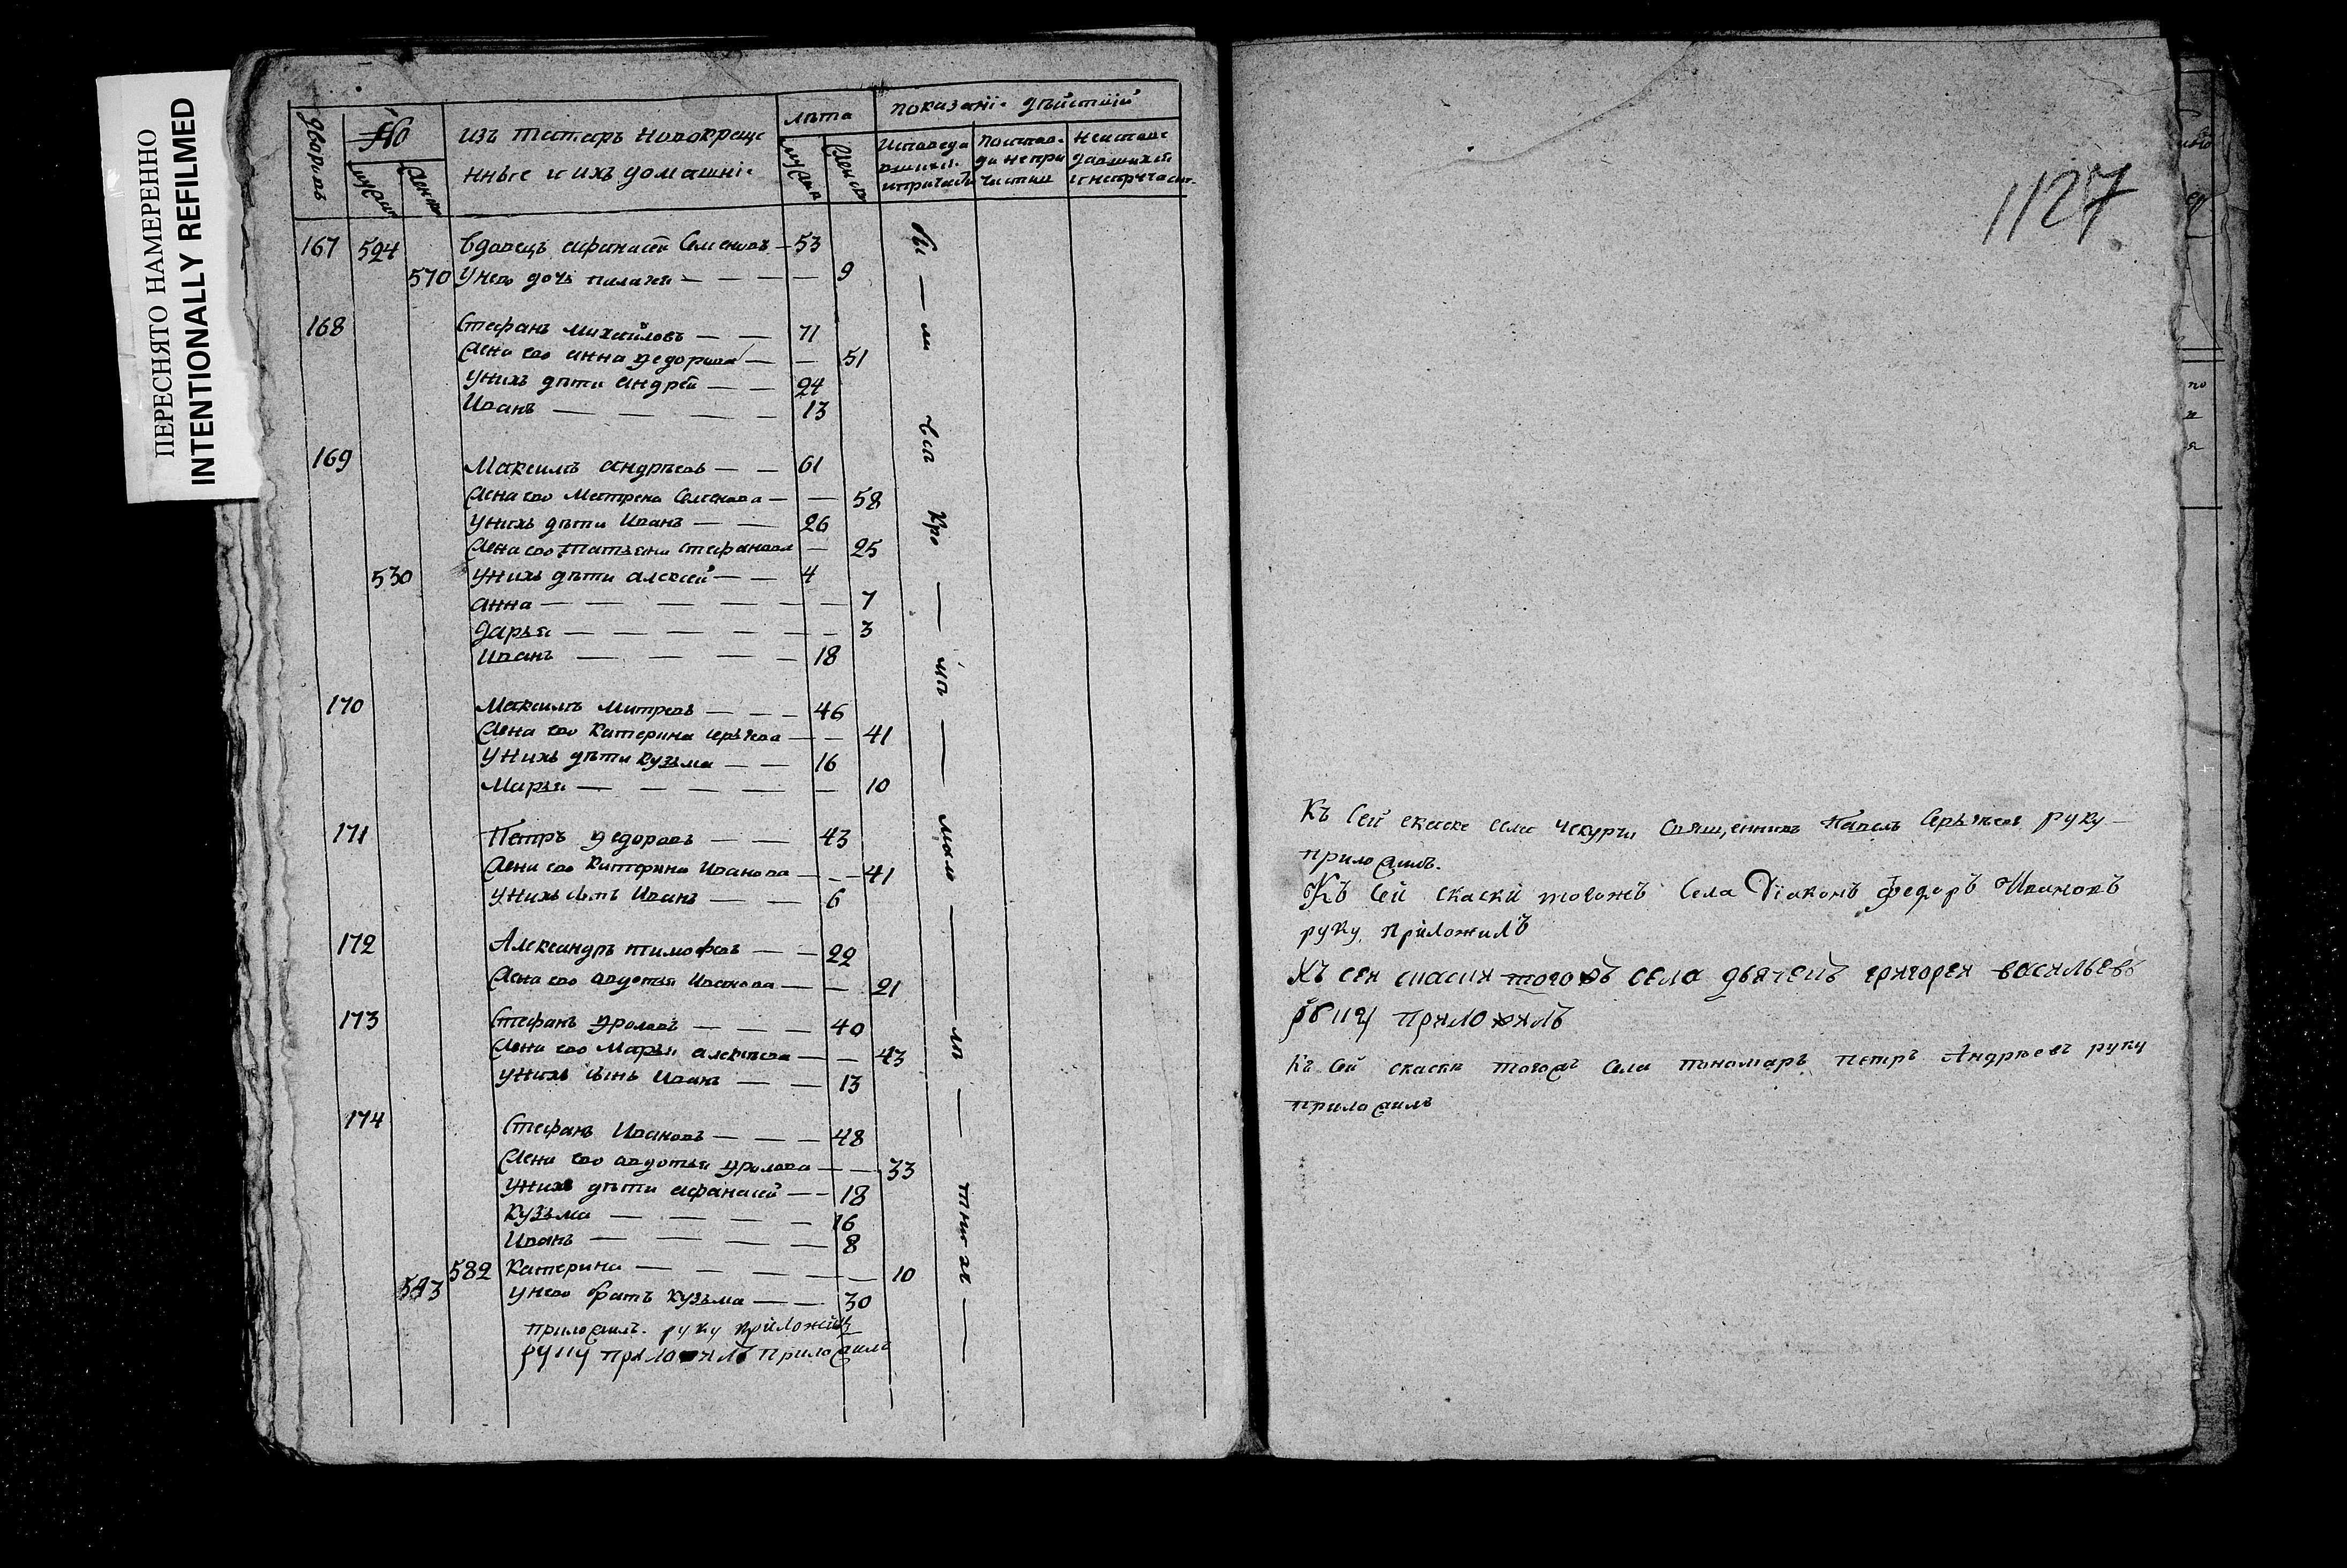 ПЕРЕСНЯТО НАМЕРЕННО
INTENTIONALLY REFILMED
дворовъ
No
муж
женс
изъ татаръ новокреще
нные и ихъ домашние
лѣта
мужска
женска
показаниi действий
исповеда
вшихся
и причасти
исповеда не при
частии
неиспове
давшихся
и непричаст.
167 524 вдовецъ афанасей Семеновъ — 53
570 у него дочь пилагея — — — 9
168 Стефанъ михайловъ — — 71
жена ево анна федорова — — 51
у нихъ дѣти андрей — — 24
Иванъ — — — — 13
169 Максимъ андрѣевъ — — 61
жена ево Матрена Семенова — — 58
у нихъ дѣти Иванъ — — 26
жена ево татьяна стефанова — 25
530 у нихъ дѣти алексей — — 4
анна — — — — — — 7
дарья — — — — — — 3
иванъ — — — — 18
170 Максимъ Митревъ — — — 46
жена ево Катерина сергѣева — — 41
у нихъ дѣти кузьма — — 16
Марья — — — — — 10
171 Петръ федоровъ — — 43
жена ево Катерина Иванова — — — 41
у нихъ сынъ Иванъ — — 6
172 Александръ тимофеевъ — — 22
жена ево авдотья Иванова — — 21
173 Стефанъ фроловъ — — — 40
жена ево Марья алексѣева — — 43
у нихъ сынъ Иванъ — — 13
174 Стефанъ Ивановъ — — — 48
жена ево авдотья фролова — — 33
у нихъ дѣти афанасей — — 18
кузьма — — — — 16
Иванъ — — — — 8
582 Катерина — — — — — 10
543 у него братъ кузьма — — 30
приложилъ. руку приложилъ
руку приложилъ приложилъ
1127
Къ сей скаске села Чекурчи священникъ Павелъ Сергѣевъ руку
приложилъ.
Къ сей скаски тогожъ села дiаконъ федоръ Ивановъ
руку приложилъ
Къ сей скаски тогожъ села дьячекъ григорей васильевъ
руку приложилъ
Къ сей скаски тогожъ села пономарь петръ Андрѣевъ руку
приложилъ